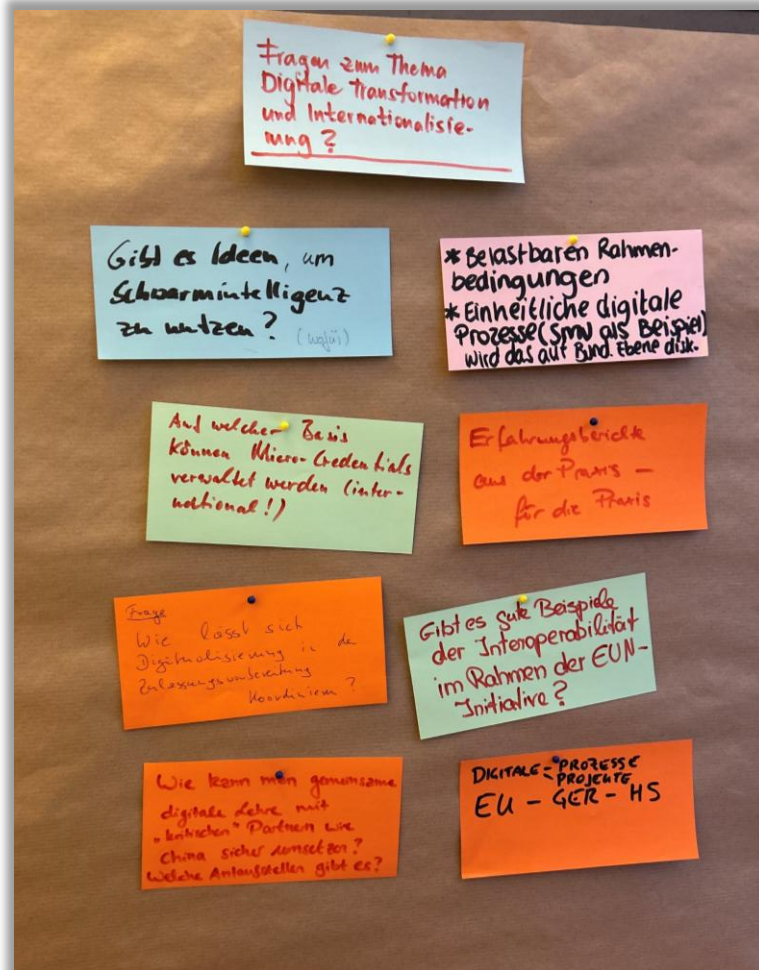 Fragen zum Thema
Digitale Transformation
und Internationalisie-
rung?
Gibt es Ideen, um
Schwarmintelligenz
zu nutzen? (wofür)
* Belastbaren Rahmen-
bedingungen
* Einheitliche digitale
Prozesse (SMW als Beispiel)
wird das auf Bund. Ebene disk.
Auf welcher Basis
können Micro-Credentials
verwaltet werden (inter-
national!)
Erfahrungsberichte
aus der Praxis –
für die Praxis
Frage
Wie lässt sich
Digitalisierung in der
Zulassungsvorbereitung
koordinieren?
Gibt es gute Beispiele
der Interoperabilität
im Rahmen der EUN-
Initiative?
Wie kann man gemeinsame
digitale Lehre mit
„kritischen" Partnern wie
China sicher umsetzen?
Welche Anlaufstellen gibt es?
DIGITALE PROZESSE
PROJEKTE
EU – GER – HS